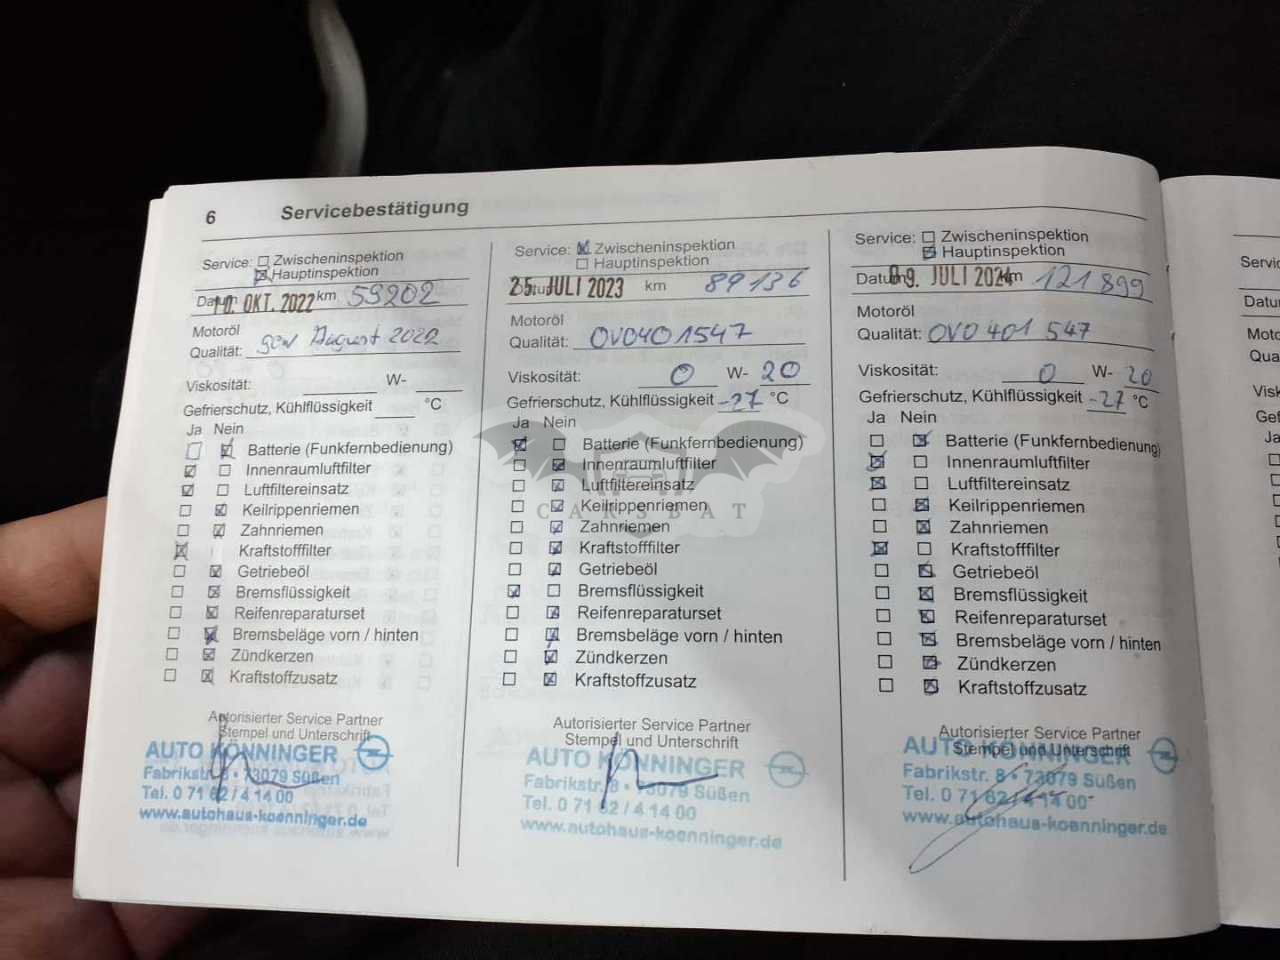 6 Servicebestätigung
Service: ☐ Zwischeninspektion
☒ Hauptinspektion
Datum 10. OKT. 2022 km 59202
Motoröl
Qualität: August 2022
Viskosität: W-
Gefrierschutz, Kühlflüssigkeit °C
Ja Nein
☐ ☒ Batterie (Funkfernbedienung)
☒ ☐ Innenraumluftfilter
☒ ☐ Luftfiltereinsatz
☐ ☒ Keilrippenriemen
☐ ☒ Zahnriemen
☒ Kraftstofffilter
☐ ☒ Getriebeöl
☐ ☒ Bremsflüssigkeit
☐ ☒ Reifenreparaturset
☐ ☒ Bremsbeläge vorn / hinten
☐ ☒ Zündkerzen
☐ ☒ Kraftstoffzusatz
Autorisierter Service Partner
Stempel und Unterschrift
AUTO KÖNNINGER
Fabrikstr. 8 • 73079 Süßen
Tel. 0 71 62 / 4 14 00
www.autohaus-koenninger.de
Service: ☒ Zwischeninspektion
☐ Hauptinspektion
Datum 25. JULI 2023 km 89136
Motoröl
Qualität: OVO401547
Viskosität: 0 W- 20
Gefrierschutz, Kühlflüssigkeit -27 °C
Ja Nein
☒ ☐ Batterie (Funkfernbedienung)
☐ ☒ Innenraumluftfilter
☐ ☒ Luftfiltereinsatz
☐ ☒ Keilrippenriemen
☐ ☒ Zahnriemen
☐ ☒ Kraftstofffilter
☐ ☒ Getriebeöl
☒ ☐ Bremsflüssigkeit
☐ ☒ Reifenreparaturset
☐ ☒ Bremsbeläge vorn / hinten
☐ ☒ Zündkerzen
☐ ☒ Kraftstoffzusatz
Autorisierter Service Partner
Stempel und Unterschrift
AUTO KÖNNINGER
Fabrikstr. 8 • 73079 Süßen
Tel. 0 71 62 / 4 14 00
www.autohaus-koenninger.de
Service: ☐ Zwischeninspektion
☒ Hauptinspektion
Datum 09. JULI 2024 km 121899
Motoröl
Qualität: OVO 401 547
Viskosität: 0 W- 20
Gefrierschutz, Kühlflüssigkeit -27 °C
Ja Nein
☐ ☒ Batterie (Funkfernbedienung)
☒ ☐ Innenraumluftfilter
☒ ☐ Luftfiltereinsatz
☐ ☒ Keilrippenriemen
☐ ☒ Zahnriemen
☒ ☐ Kraftstofffilter
☐ ☒ Getriebeöl
☐ ☒ Bremsflüssigkeit
☐ ☒ Reifenreparaturset
☐ ☒ Bremsbeläge vorn / hinten
☐ ☒ Zündkerzen
☐ ☒ Kraftstoffzusatz
Autorisierter Service Partner
Stempel und Unterschrift
AUTO KÖNNINGER
Fabrikstr. 8 • 73079 Süßen
Tel. 0 71 62 / 4 14 00
www.autohaus-koenninger.de
CARSBAT